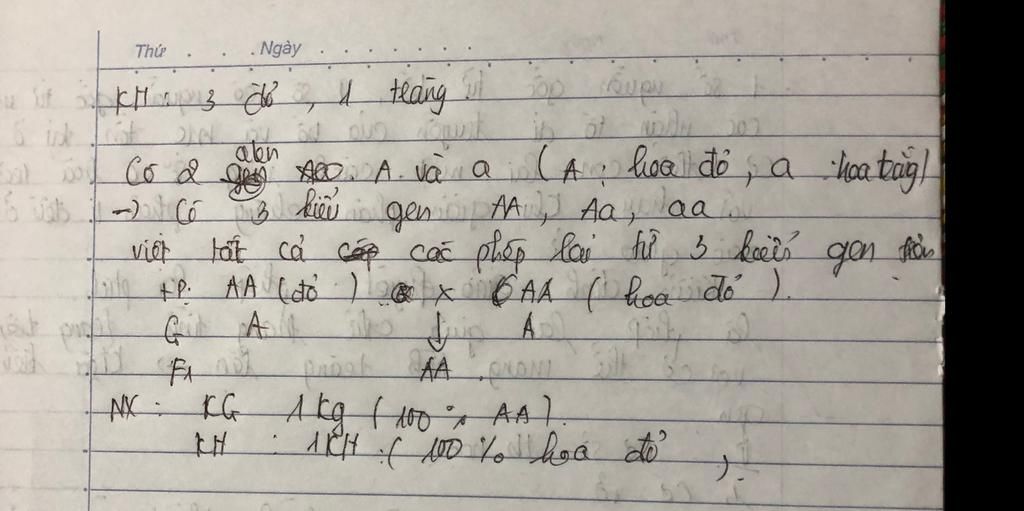 Thứ . . . . Ngày . . . . . . .
KH : 3 đỏ , 1 trắng .
alen
Có 2 A và a ( A : hoa đỏ , a : hoa trắg )
-> Có 3 kiểu gen AA , Aa , aa
viết tất cả các phép lai từ 3 kiểu gen trên
+P. AA (đỏ ) x AA ( hoa đỏ ).
G A ↓ A
F1 AA .
NX : KG 1kg ( 100 % AA ).
KH : 1KH : ( 100 % hoa đỏ ,